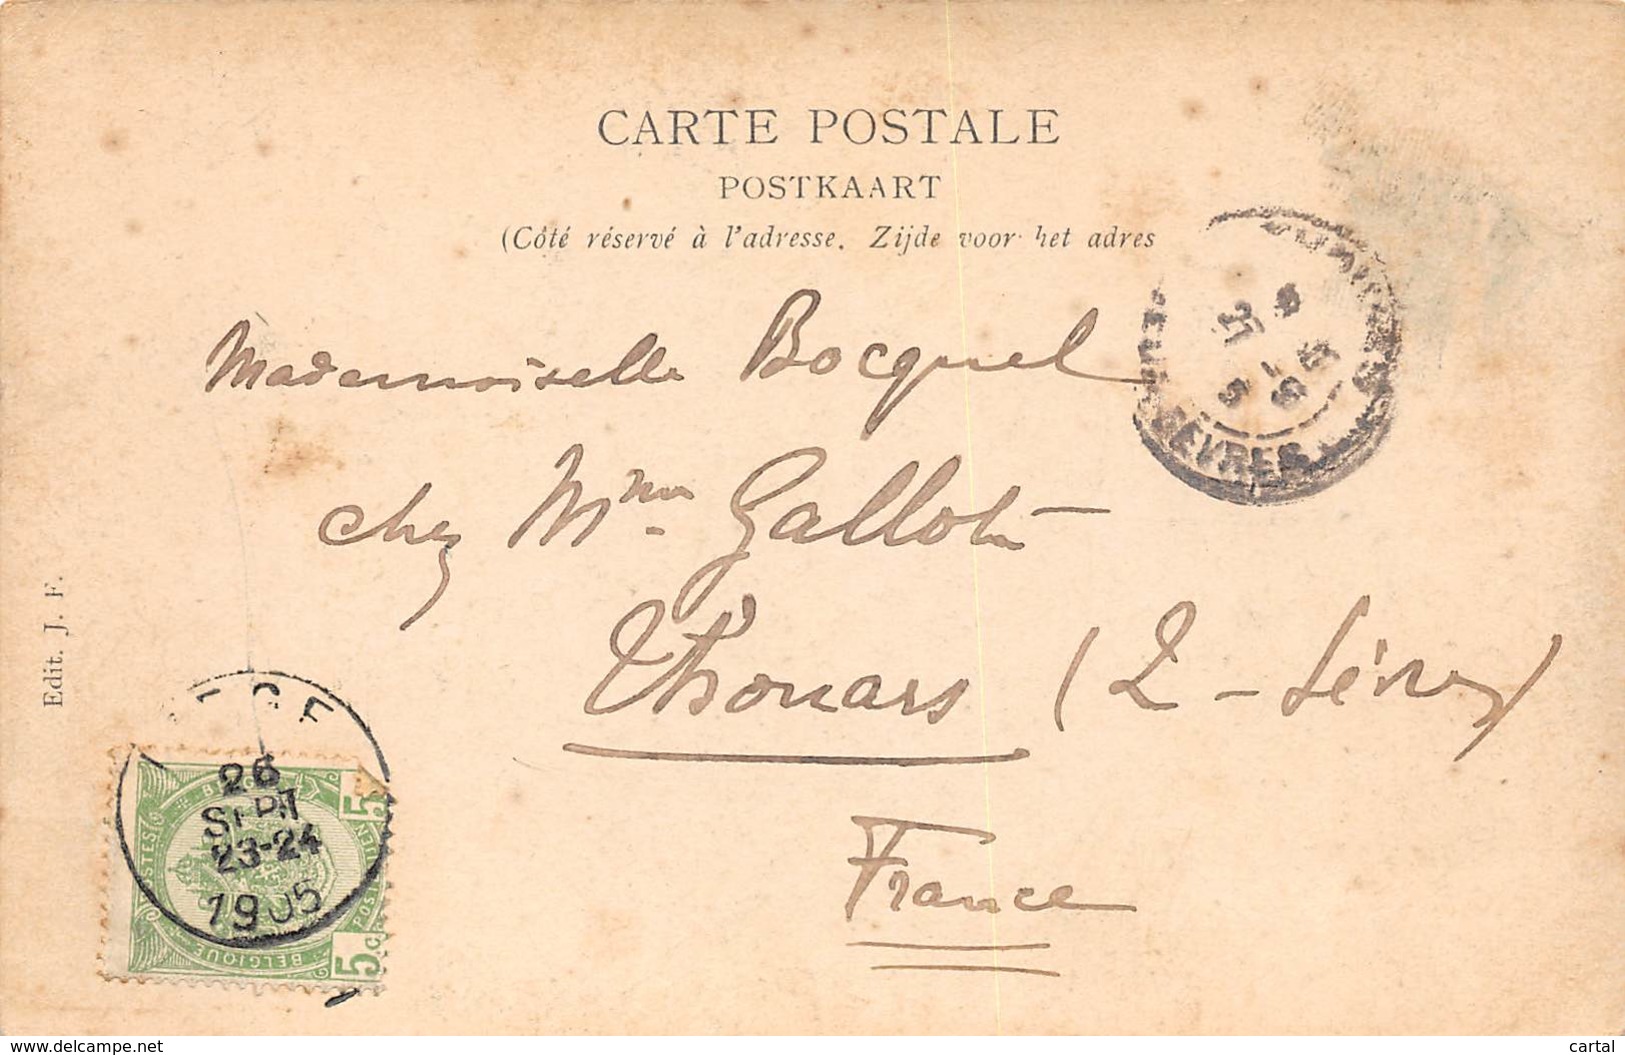 CARTE POSTALE
POSTKAART
(Côté réservé à l'adresse. Zijde voor het adres
Mademoiselle Bocquel
chez Mme Gallot
Thouars (2-Sèvres)
France
Edit. J. F.
26
SEPT
23-24
1905
BELGIQUE
5
5c.
27
SEVRES
delcampe.net
cartal